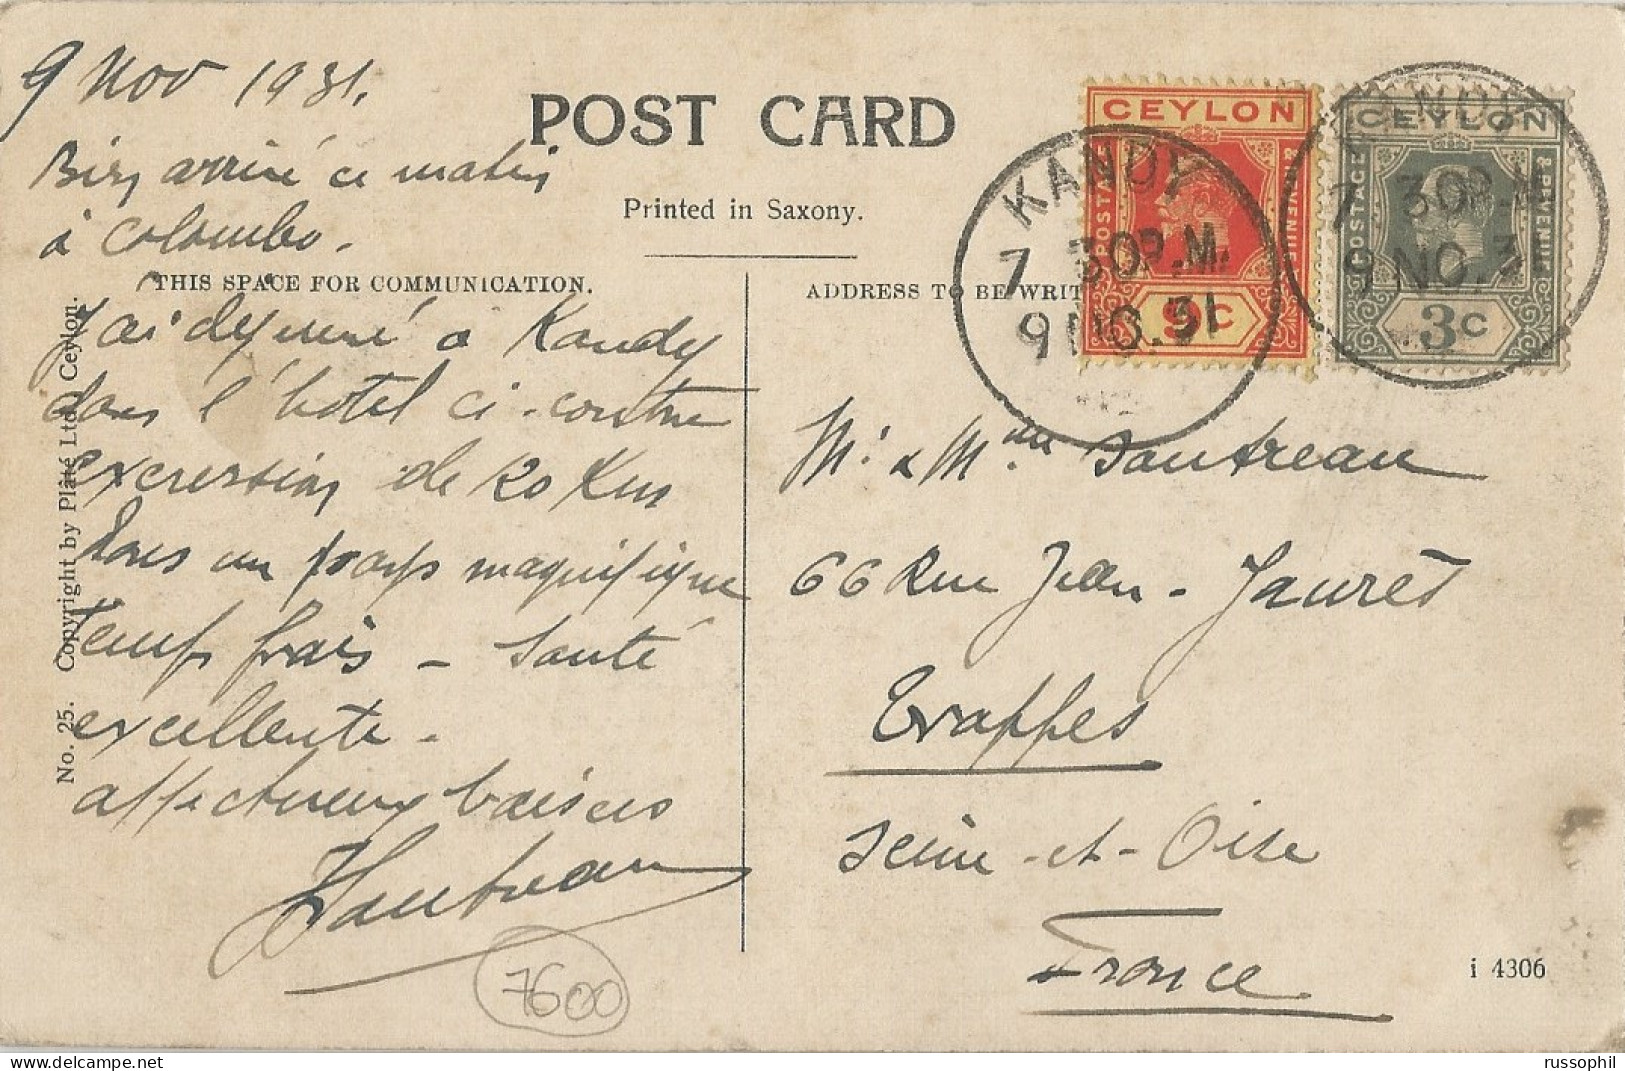 9 Nov 1931.
Bien arrivé ce matin
à Colombo.
j'ai déjeuné à Kandy
dans l'hôtel ci-contre
excursion de 120 Kms
dans un pays magnifique
temps frais - Santé
excellente -
affectueux baisers
7600
POST CARD
Printed in Saxony.
THIS SPACE FOR COMMUNICATION.
ADDRESS TO BE WRIT
No. 25. Copyright by Plâté Ltd. Ceylon.
CEYLON
POSTAGE
& REVENUE
9C
CEYLON
POSTAGE
& REVENUE
3C
KANDY
7 30 P.M.
9 NO. 31
KANDY
7 30 P.M.
9 NO. 31
Mr. & Mme Sautreau
66 Rue Jean-Jaurès
Trappes
Seine-et-Oise
France
i 4306
russophil